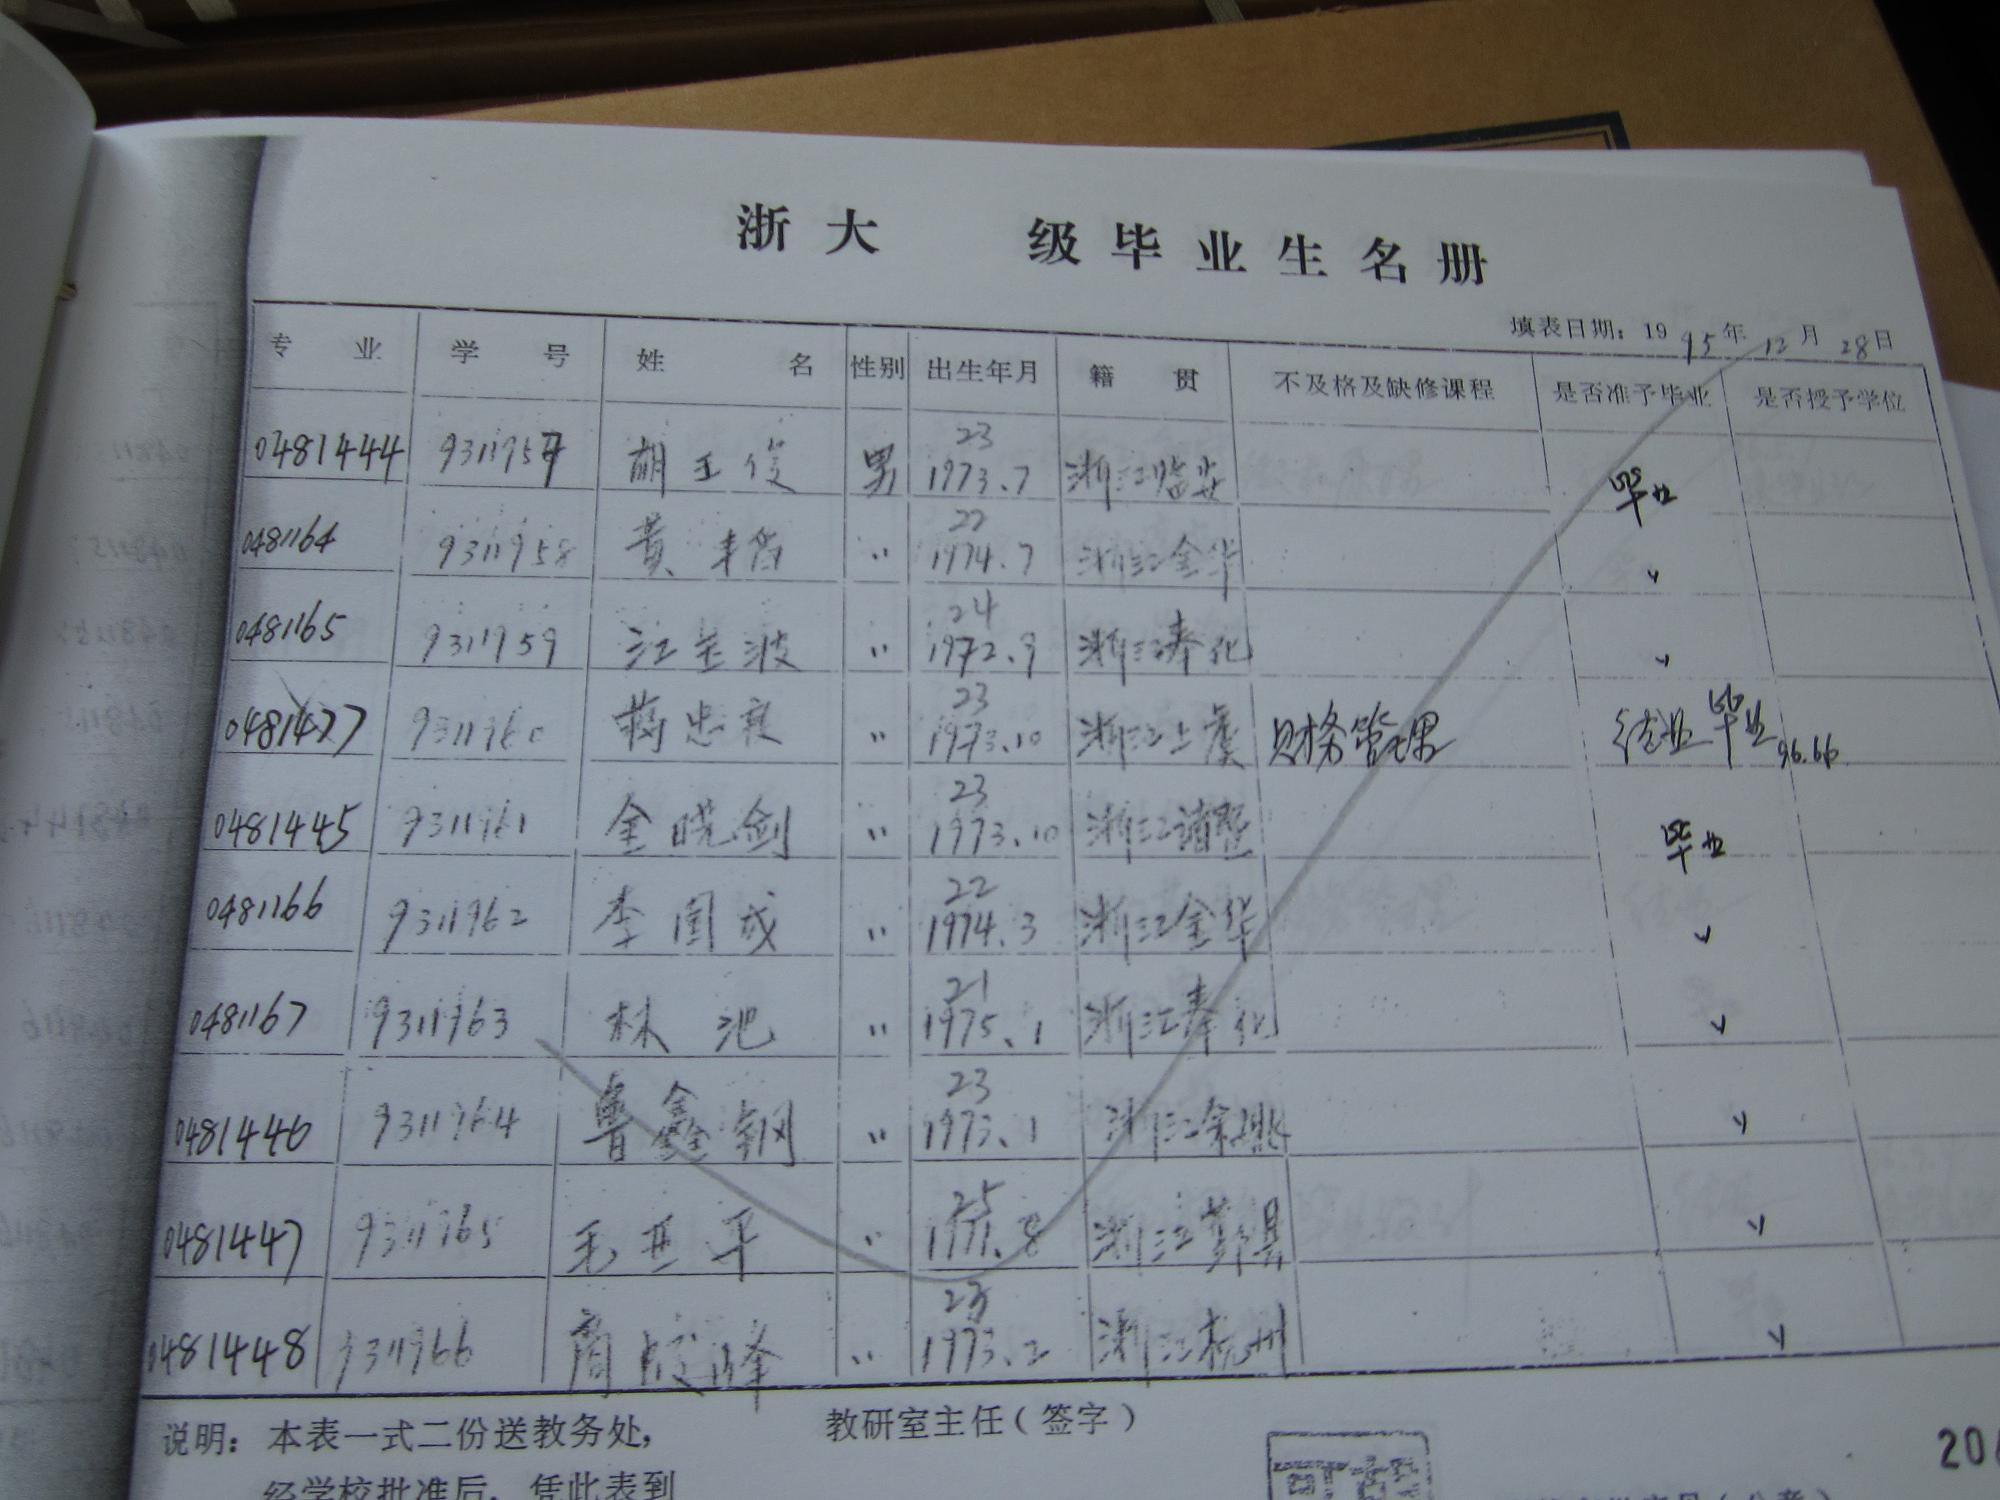 浙大 级毕业生名册
填表日期：1995年12月28日
专业 学号 姓名 性别 出生年月 籍贯 不及格及缺修课程 是否准予毕业 是否授予学位
23
0481444 9311957 胡王俊 男 1973.7 浙江临安 毕业
22
0481164 9311958 黄 1974.7 浙江金华 〃
24
0481165 9311959 江 波 〃 1972.9 浙江奉化 〃
23
0481477 9311960 蒋忠良 〃 1973.10 浙江上虞 财务管理 结业 毕业 96.66
23
0481445 9311961 金晓剑 〃 1973.10 浙江诸暨 毕业
22
0481166 9311962 李国成 〃 1974.3 浙江金华 〃
21
0481167 9311963 林池 〃 1975.1 浙江奉化 〃
23
0481446 9311964 鲁鑫钢 〃 1973.1 浙江余姚 〃
25
0481447 9311965 毛亚平 〃 1971.8 浙江鄞县 〃
23
0481448 9311966 商 峰 〃 1973.2 浙江杭州 〃
说明：本表一式二份送教务处， 教研室主任（签字）
经学校批准后，凭此表到
20